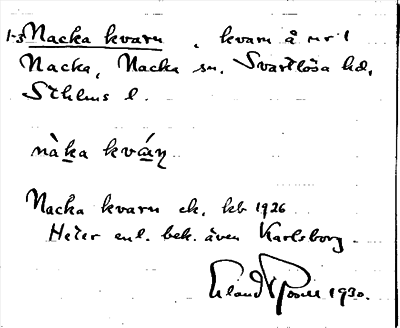 1-3 Nacka kvarn, kvarn å nr 1
Nacka, Nacka sn. Svartlösa hd.
Sthlms l.
nàka kván
Nacka kvarn ek. kb 1926
Heter enl. bek. även Karlsborg.
Erland Rosell 1930.